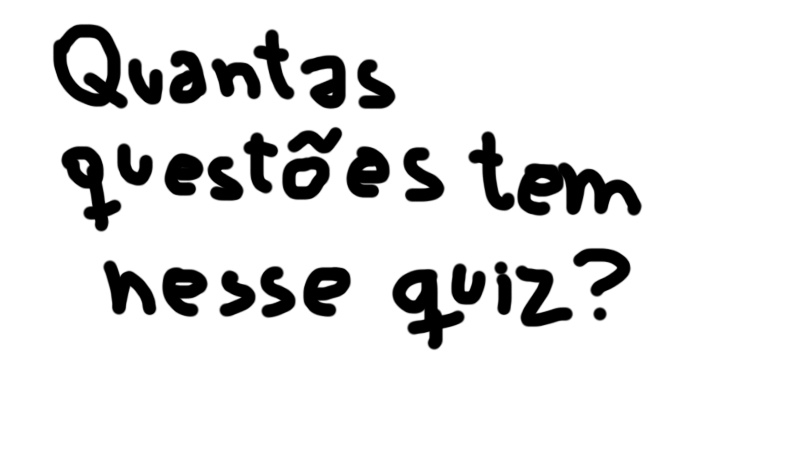 Quantas
questões tem
nesse quiz?